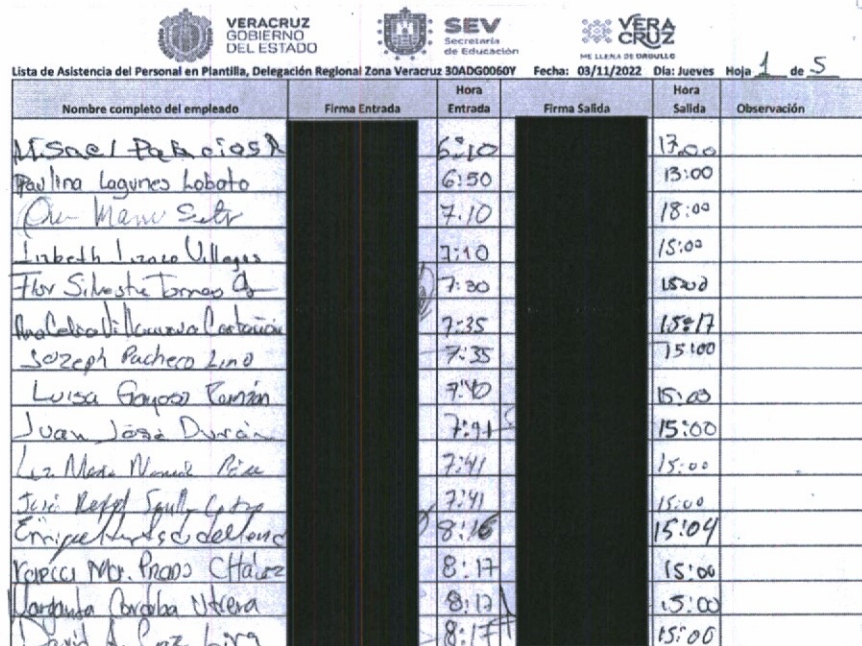 VERACRUZ
GOBIERNO
DEL ESTADO
SEV
Secretaría
de Educación
VERA
CRUZ
ME LLENA DE ORGULLO
Lista de Asistencia del Personal en Plantilla, Delegación Regional Zona Veracruz 30ADG0060Y Fecha: 03/11/2022 Día: Jueves Hoja 1 de 5
Nombre completo del empleado Firma Entrada Hora Entrada Firma Salida Hora Salida Observación
Misael Palacios 6:10 17:00
Paulina Lagunes Lobato 6:50 13:00
7:10 18:00
Lizbeth Villegas 7:10 15:00
Flor Silvestre Torres 7:30 15:00
Ana Celia Villanueva 7:35 15:17
Jozeph Pacheco Lino 7:35 15:00
Luisa Gayosso 7:40 15:03
Juan José Durán 7:41 15:00
Luz María 7:41 15:00
José 7:41 15:00
Enrique 8:16 15:04
Ma. Prado Chávez 8:17 15:00
Margarita Cordoba Utrera 8:17 15:00
David A. 8:17 15:00